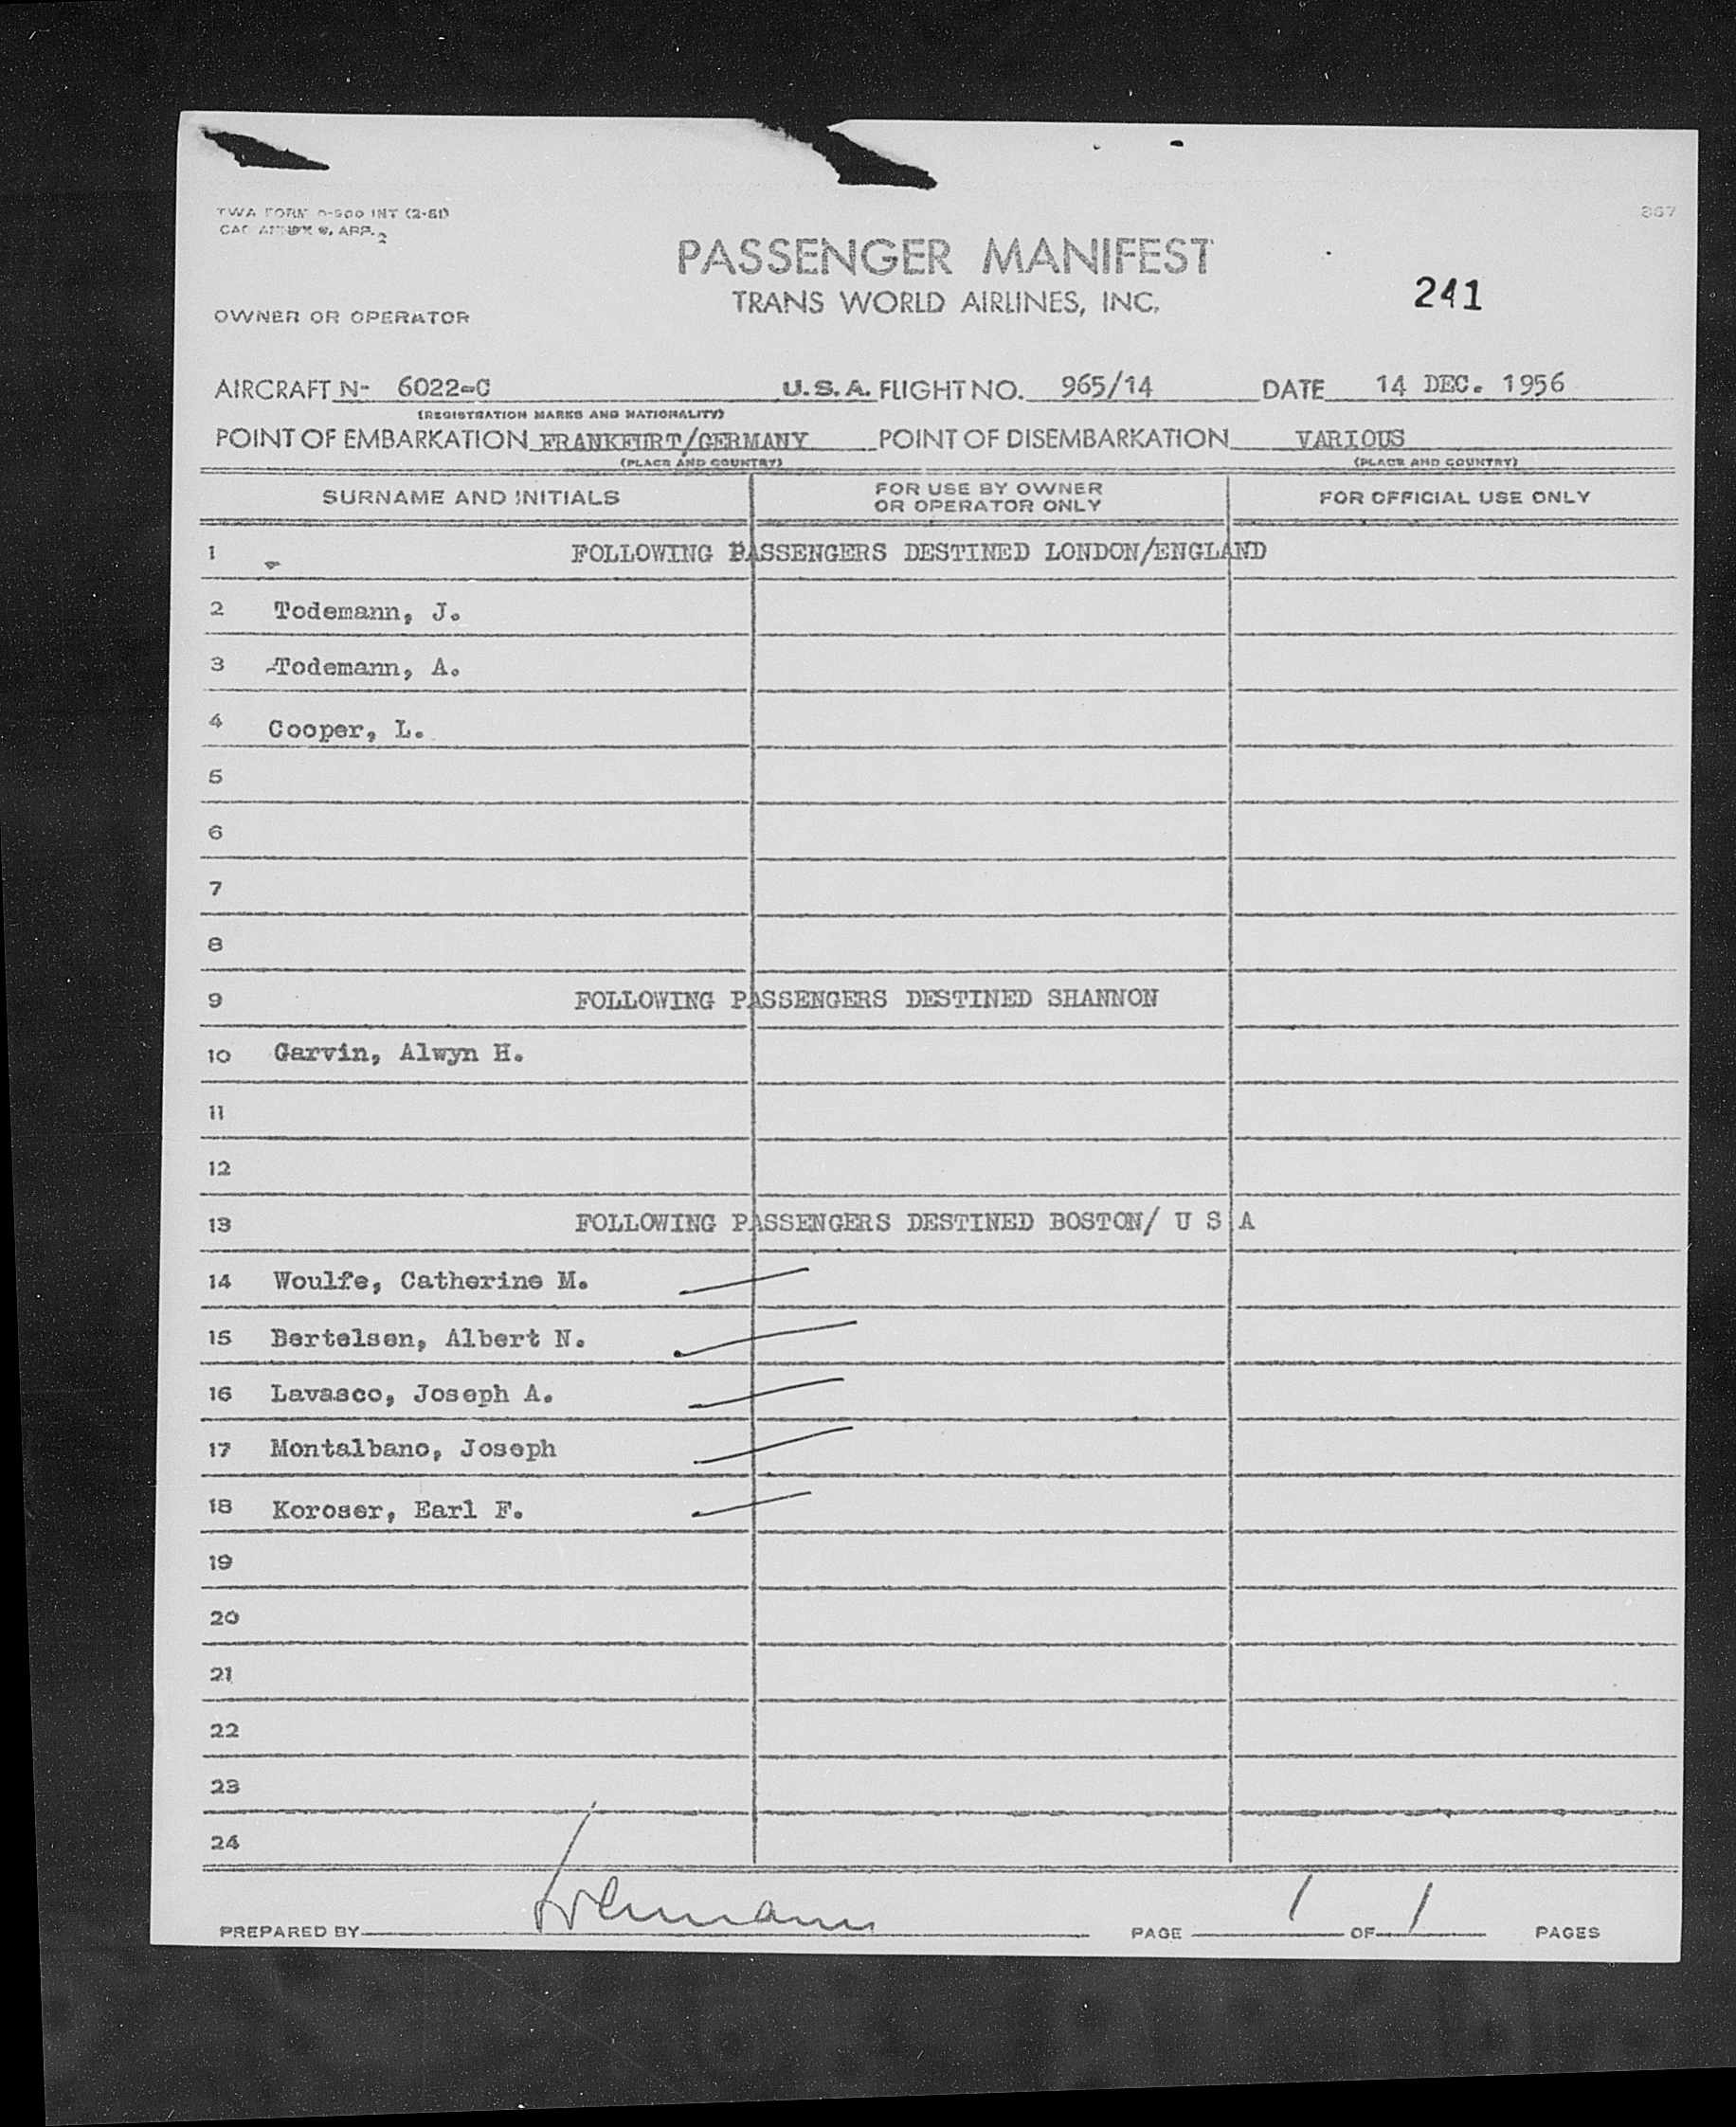 TWA FORM
367
PASSENGER MANIFEST
241
TRANS WORLD AIRLINES, INC.
OWNER OR OPERATOR
AIRCRAFT N- 6022-C U.S.A. FLIGHT NO. 965/14 DATE 14 DEC. 1956
(REGISTRATION MARKS AND NATIONALITY)
POINT OF EMBARKATION FRANKFURT/GERMANY POINT OF DISEMBARKATION VARIOUS
(PLACE AND COUNTRY) (PLACE AND COUNTRY)
SURNAME AND INITIALS FOR USE BY OWNER OR OPERATOR ONLY FOR OFFICIAL USE ONLY
1 FOLLOWING PASSENGERS DESTINED LONDON/ENGLAND
2 Todemann, J.
3 -Todemann, A.
4 Cooper, L.
5
6
7
8
9 FOLLOWING PASSENGERS DESTINED SHANNON
10 Garvin, Alwyn H.
11
12
13 FOLLOWING PASSENGERS DESTINED BOSTON/ U S A
14 Woulfe, Catherine M.
15 Bertelsen, Albert N.
16 Lavasco, Joseph A.
17 Montalbano, Joseph
18 Koroser, Earl F.
19
20
21
22
23
24
PREPARED BY PAGE 1 OF 1 PAGES